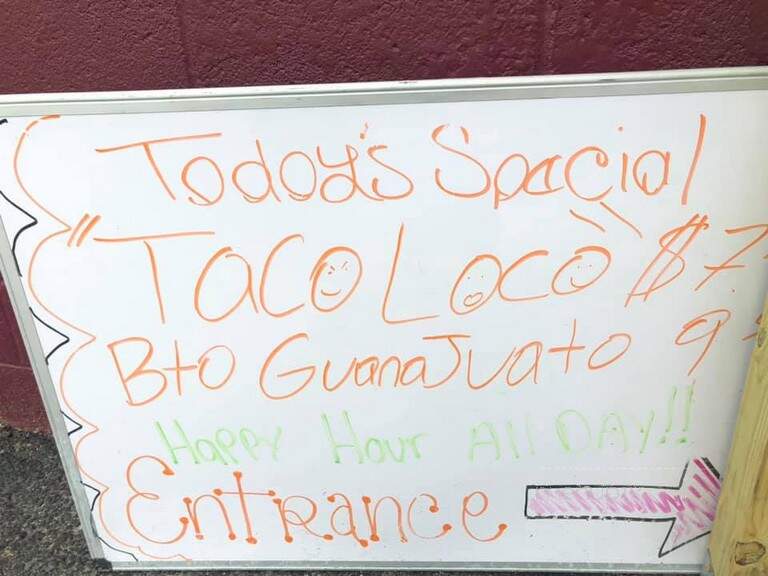 Today's Special
"Taco Loco" $7
Bto Guanajuato 9
Happy Hour All DAY!!
Entrance